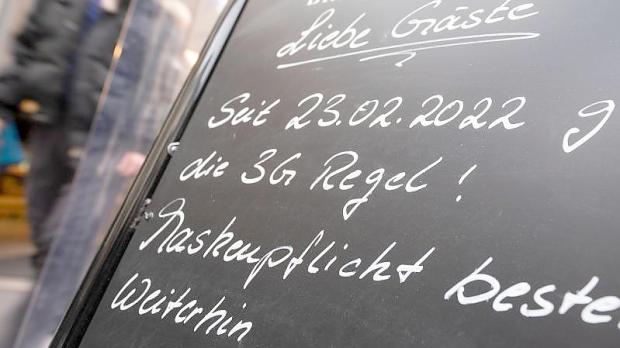 Liebe Gäste
Seit 23.02.2022 g
die 3G Regel!
Maskenpflicht beste
Weiterhin